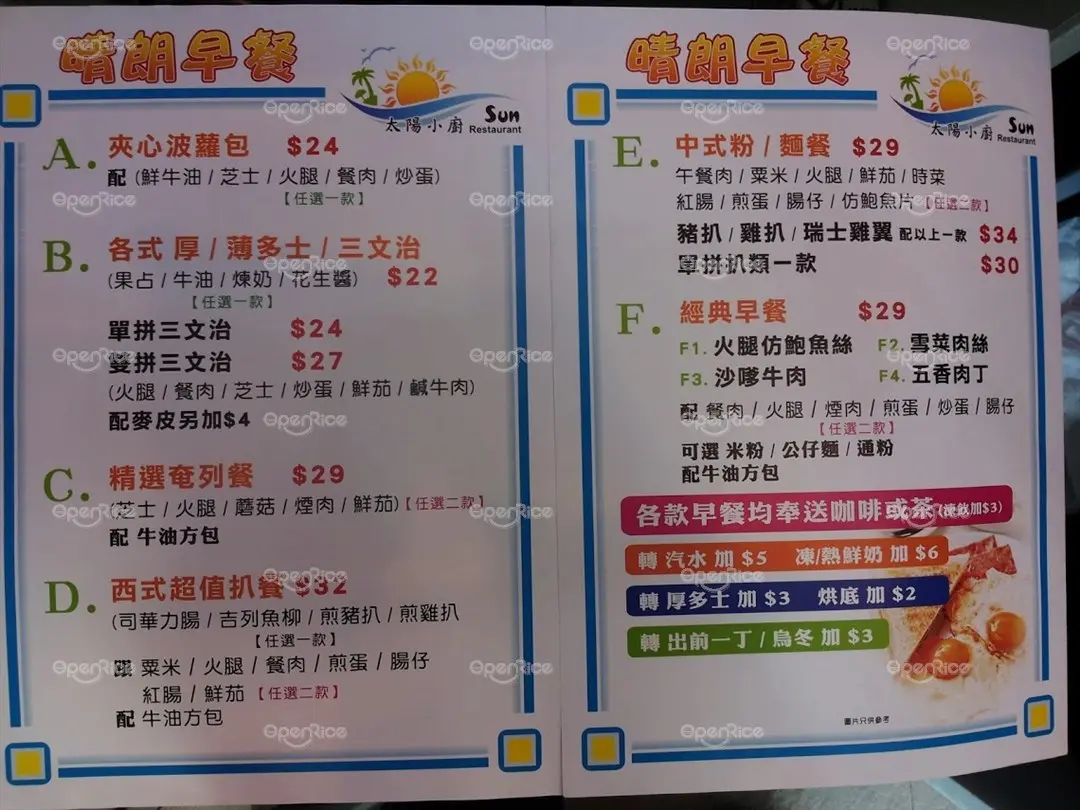 晴朗早餐
太陽小廚 Sun Restaurant
A. 夾心波蘿包 $24
配 (鮮牛油 / 芝士 / 火腿 / 餐肉 / 炒蛋)
【任選一款】
B. 各式 厚 / 薄多士 / 三文治
(果占 / 牛油 / 煉奶 / 花生醬) $22
【任選一款】
單拼三文治 $24
雙拼三文治 $27
(火腿 / 餐肉 / 芝士 / 炒蛋 / 鮮茄 / 鹹牛肉)
配麥皮另加$4
C. 精選奄列餐 $29
(芝士 / 火腿 / 蘑菇 / 煙肉 / 鮮茄) 【任選二款】
配 牛油方包
D. 西式超值扒餐 $32
(司華力腸 / 吉列魚柳 / 煎豬扒 / 煎雞扒
【任選一款】
跟 粟米 / 火腿 / 餐肉 / 煎蛋 / 腸仔
紅腸 / 鮮茄 【任選二款】
配 牛油方包
晴朗早餐
太陽小廚 Sun Restaurant
E. 中式粉 / 麵餐 $29
午餐肉 / 粟米 / 火腿 / 鮮茄 / 時菜
紅腸 / 煎蛋 / 腸仔 / 仿鮑魚片 【任選二款】
豬扒 / 雞扒 / 瑞士雞翼 配以上一款 $34
單拼扒類一款 $30
F. 經典早餐 $29
F1. 火腿仿鮑魚絲 F2. 雪菜肉絲
F3. 沙嗲牛肉 F4. 五香肉丁
配 餐肉 / 火腿 / 煙肉 / 煎蛋 / 炒蛋 / 腸仔
【任選二款】
可選 米粉 / 公仔麵 / 通粉
配牛油方包
各款早餐均奉送咖啡或茶 (凍飲加$3)
轉 汽水 加 $5 凍/熱鮮奶 加 $6
轉 厚多士 加 $3 烘底 加 $2
轉 出前一丁 / 烏冬 加 $3
圖片只供參考
OpenRice